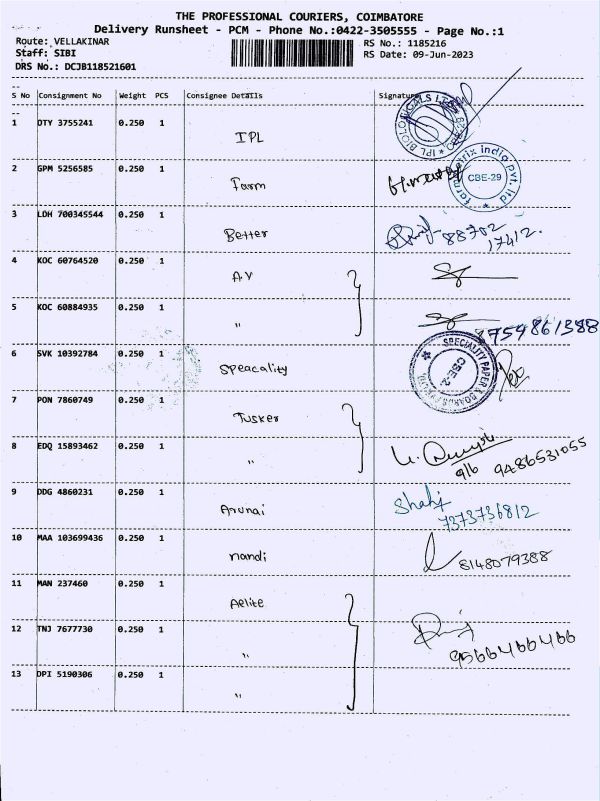 THE PROFESSIONAL COURIERS, COIMBATORE
Delivery Runsheet - PCM - Phone No.:0422-3505555 - Page No.:1
Route: VELLAKINAR RS No.: 1185216
Staff: SIBI RS Date: 09-Jun-2023
DRS No.: DCJB118521601
S No Consignment No Weight PCS Consignee Details Signature
1 DTY 3755241 0.250 1 IPL
2 GPM 5256585 0.250 1 Farm CBE-29
3 LDH 700345544 0.250 1 Better 88702
17412.
4 KOC 60764520 0.250 1 A.V
5 KOC 60884935 0.250 1 " 8754861388
6 SVK 10392784 0.250 1 Speacality SPECIALITY PAPER & BOARDS CBE-2
7 PON 7860749 0.250 1 Tusker
8 EDQ 15893462 0.250 1 " 9486531055
9 DDG 4860231 0.250 1 Arunai Shahi
7373736812
10 MAA 103699436 0.250 1 nandi 8148079388
11 MAN 237460 0.250 1 Aelite
12 TNJ 7677730 0.250 1 " 9566466466
13 DPI 5190306 0.250 1 "